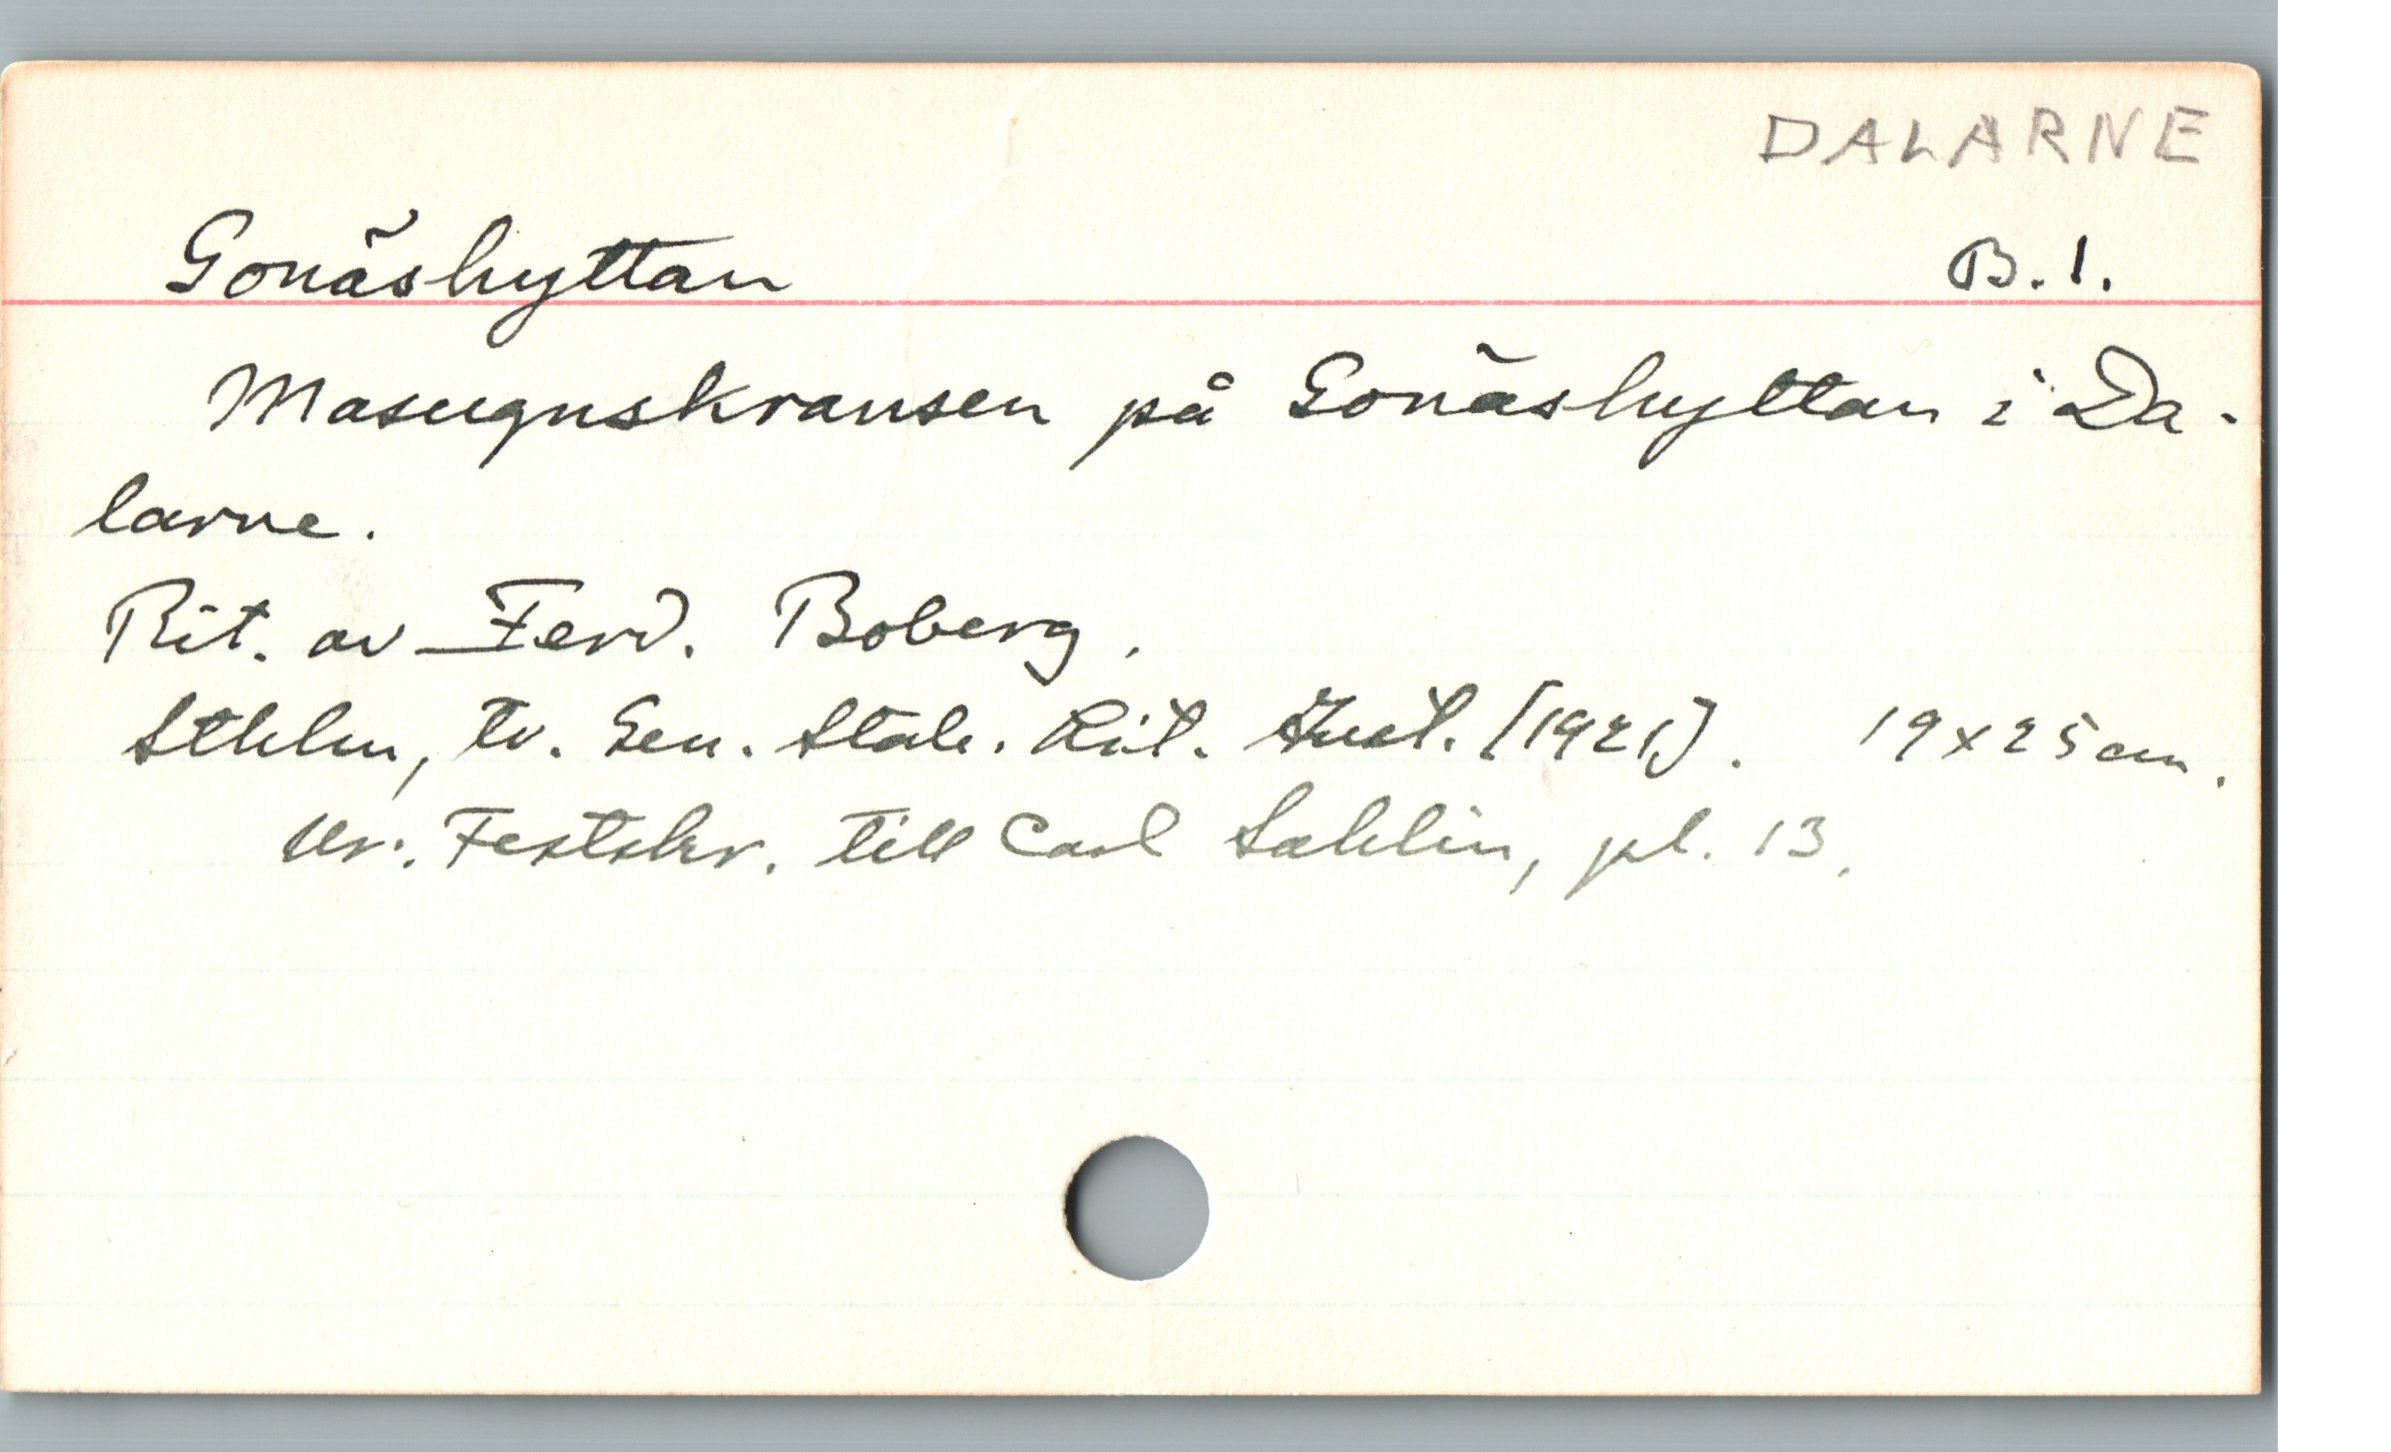 DALARNE
Gonäshyttan B. 1.
Masugnskransen på Gonäshyttan i Da-
larne.
Rit. av Ferd. Boberg.
Sthlm, tr. Gen. Stab. Lit. Inst. [1921]. 19x25 cm.
Ur: Festskr. till Carl Sahlin, pl. 13.